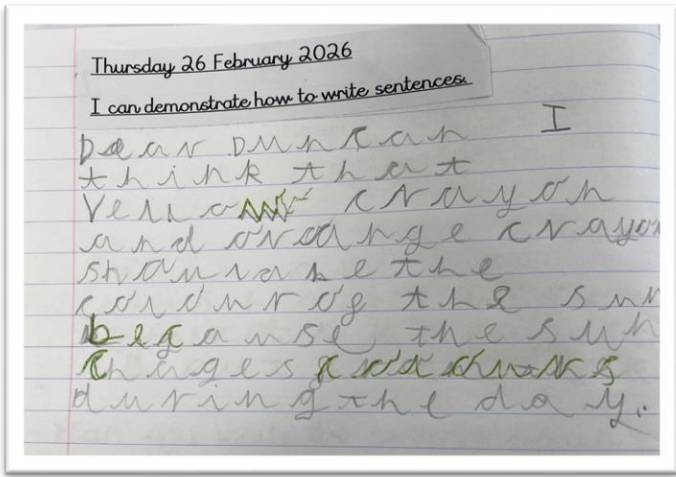 Thursday 26 February 2026
I can demonstrate how to write sentences.
Dear Duncan I
think that
Yellow crayon
and orange crayon
the
colour of the sun
because the sun
chages colours
during the day.